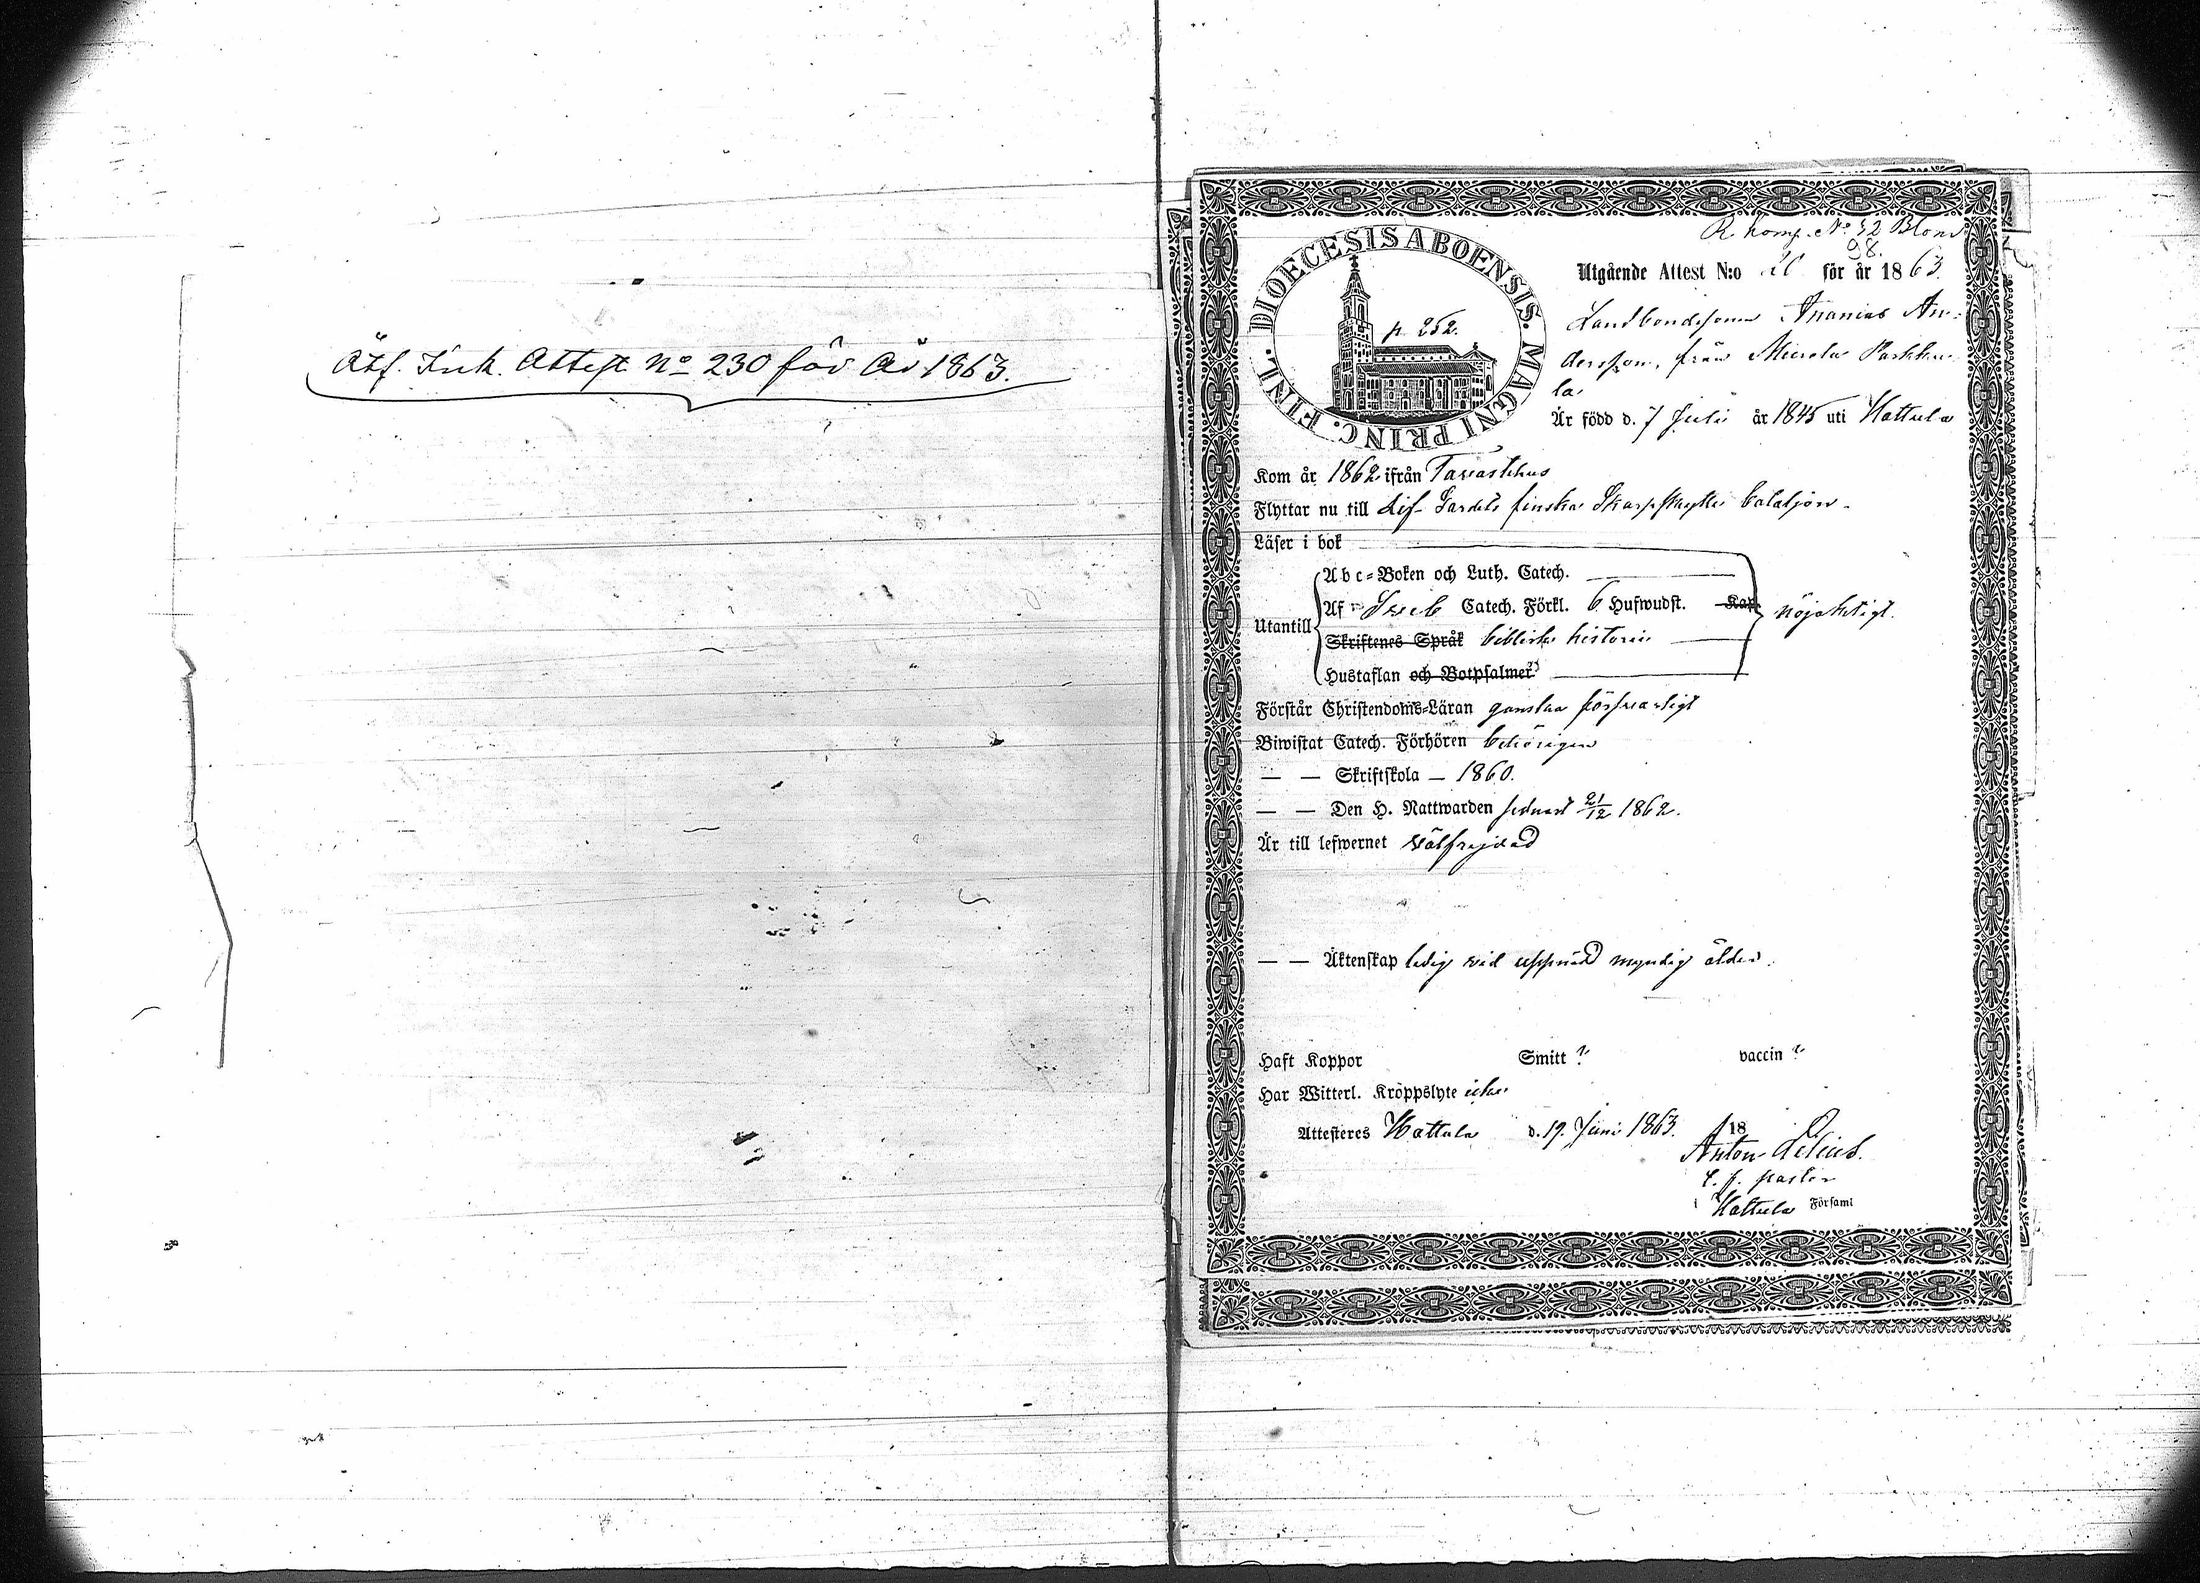 Åtf. Ink. Attest No 230 för År 1863.
R. komp. No 32 Blom
98.
DIOECESIS ABOENSIS. MAGNI PRINC. FINL.
p. 252.
Utgående Attest N:o för år 1863.
Landbondesonen Ananias An-
dersson, från Mierola Parkku-
la
Är född d. 7 Juli år 1845 uti Hattula
Kom år 1862 ifrån Tavastehus
Flyttar nu till Lif-Gardets finska Skarpskytte bataljon.
Läser i bok
Abc-Boken och Luth. Catech.
Utantill Af Catech. Förkl. 6 Hufwudst. Kap. nöjaktigt.
Skriftenes Språk bibliska historia
Hustaflan och Botpsalmer
Förstår Christendoms-Läran ganska försvarligt
Biwistat Catech. Förhören behörigen
— — Skriftskola — 1860.
— — Den H. Nattwarden sednast 21/12 1862.
Är till lefwernet välfrejdad
— — Äktenskap ledig vid uppnådd myndig ålder.
Haft Koppor Smitt ? vaccin ?
Har Witterl. Kroppslyte icke
Attesteres Hattula d. 19. Juni 1863. 18
Anton
t. f. pastor
i Hattula Församl